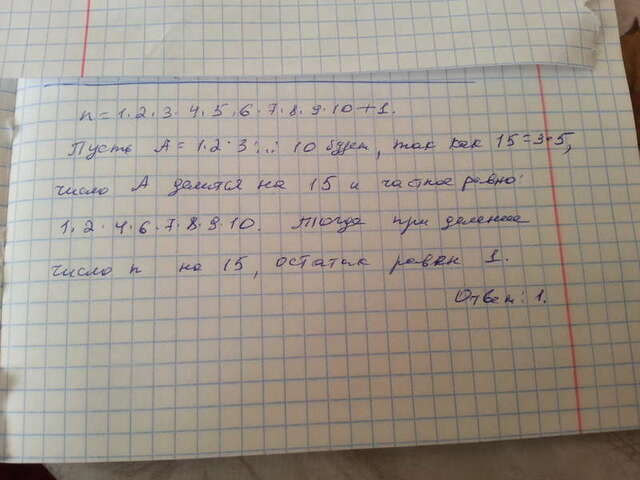 n = 1·2·3·4·5·6·7·8·9·10+1.
Пусть A = 1·2·3·...·10 будет, так как 15=3·5,
число A делится на 15 и частное равно:
1·2·4·6·7·8·9·10. Тогда при делении
число n на 15, остаток равен 1.
Ответ: 1.